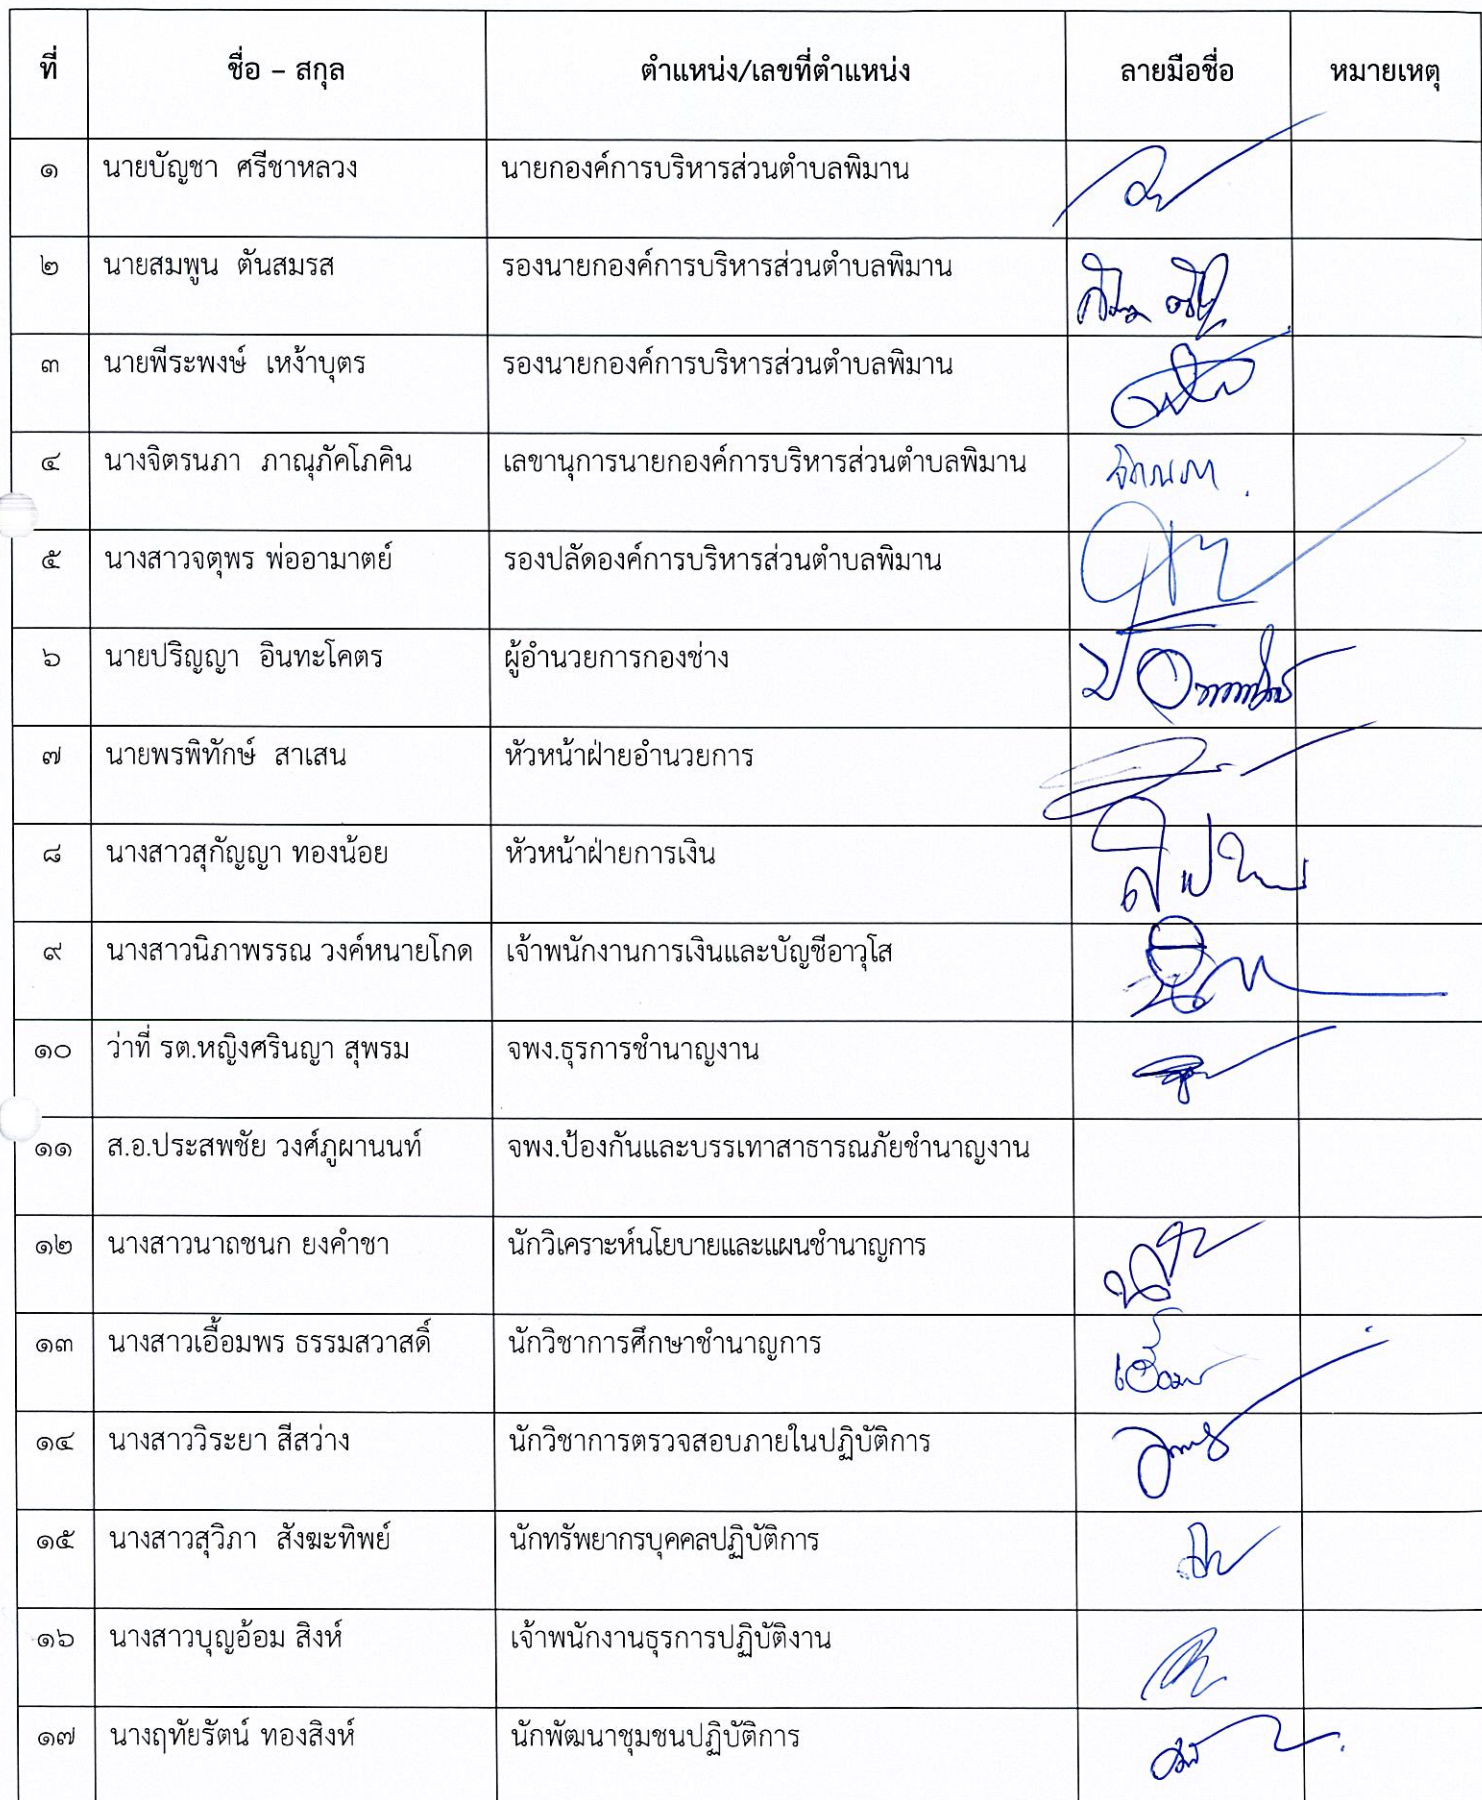 ที่ ชื่อ – สกุล ตำแหน่ง/เลขที่ตำแหน่ง ลายมือชื่อ หมายเหตุ
๑ นายบัญชา ศรีชาหลวง นายกองค์การบริหารส่วนตำบลพิมาน
๒ นายสมพูน ตันสมรส รองนายกองค์การบริหารส่วนตำบลพิมาน
๓ นายพีระพงษ์ เหง้าบุตร รองนายกองค์การบริหารส่วนตำบลพิมาน
๔ นางจิตรนภา ภาณุภัคโภคิน เลขานุการนายกองค์การบริหารส่วนตำบลพิมาน
๕ นางสาวจตุพร พ่ออามาตย์ รองปลัดองค์การบริหารส่วนตำบลพิมาน
๖ นายปริญญา อินทะโคตร ผู้อำนวยการกองช่าง
๗ นายพรพิทักษ์ สาเสน หัวหน้าฝ่ายอำนวยการ
๘ นางสาวสุกัญญา ทองน้อย หัวหน้าฝ่ายการเงิน
๙ นางสาวนิภาพรรณ วงค์หนายโกด เจ้าพนักงานการเงินและบัญชีอาวุโส
๑๐ ว่าที่ รต.หญิงศรินญา สุพรม จพง.ธุรการชำนาญงาน
๑๑ ส.อ.ประสพชัย วงศ์ภูผานนท์ จพง.ป้องกันและบรรเทาสาธารณภัยชำนาญงาน
๑๒ นางสาวนาถชนก ยงคำชา นักวิเคราะห์นโยบายและแผนชำนาญการ
๑๓ นางสาวเอื้อมพร ธรรมสวาสดิ์ นักวิชาการศึกษาชำนาญการ
๑๔ นางสาววิระยา สีสว่าง นักวิชาการตรวจสอบภายในปฏิบัติการ
๑๕ นางสาวสุวิภา สังฆะทิพย์ นักทรัพยากรบุคคลปฏิบัติการ
๑๖ นางสาวบุญอ้อม สิงห์ เจ้าพนักงานธุรการปฏิบัติงาน
๑๗ นางฤทัยรัตน์ ทองสิงห์ นักพัฒนาชุมชนปฏิบัติการ